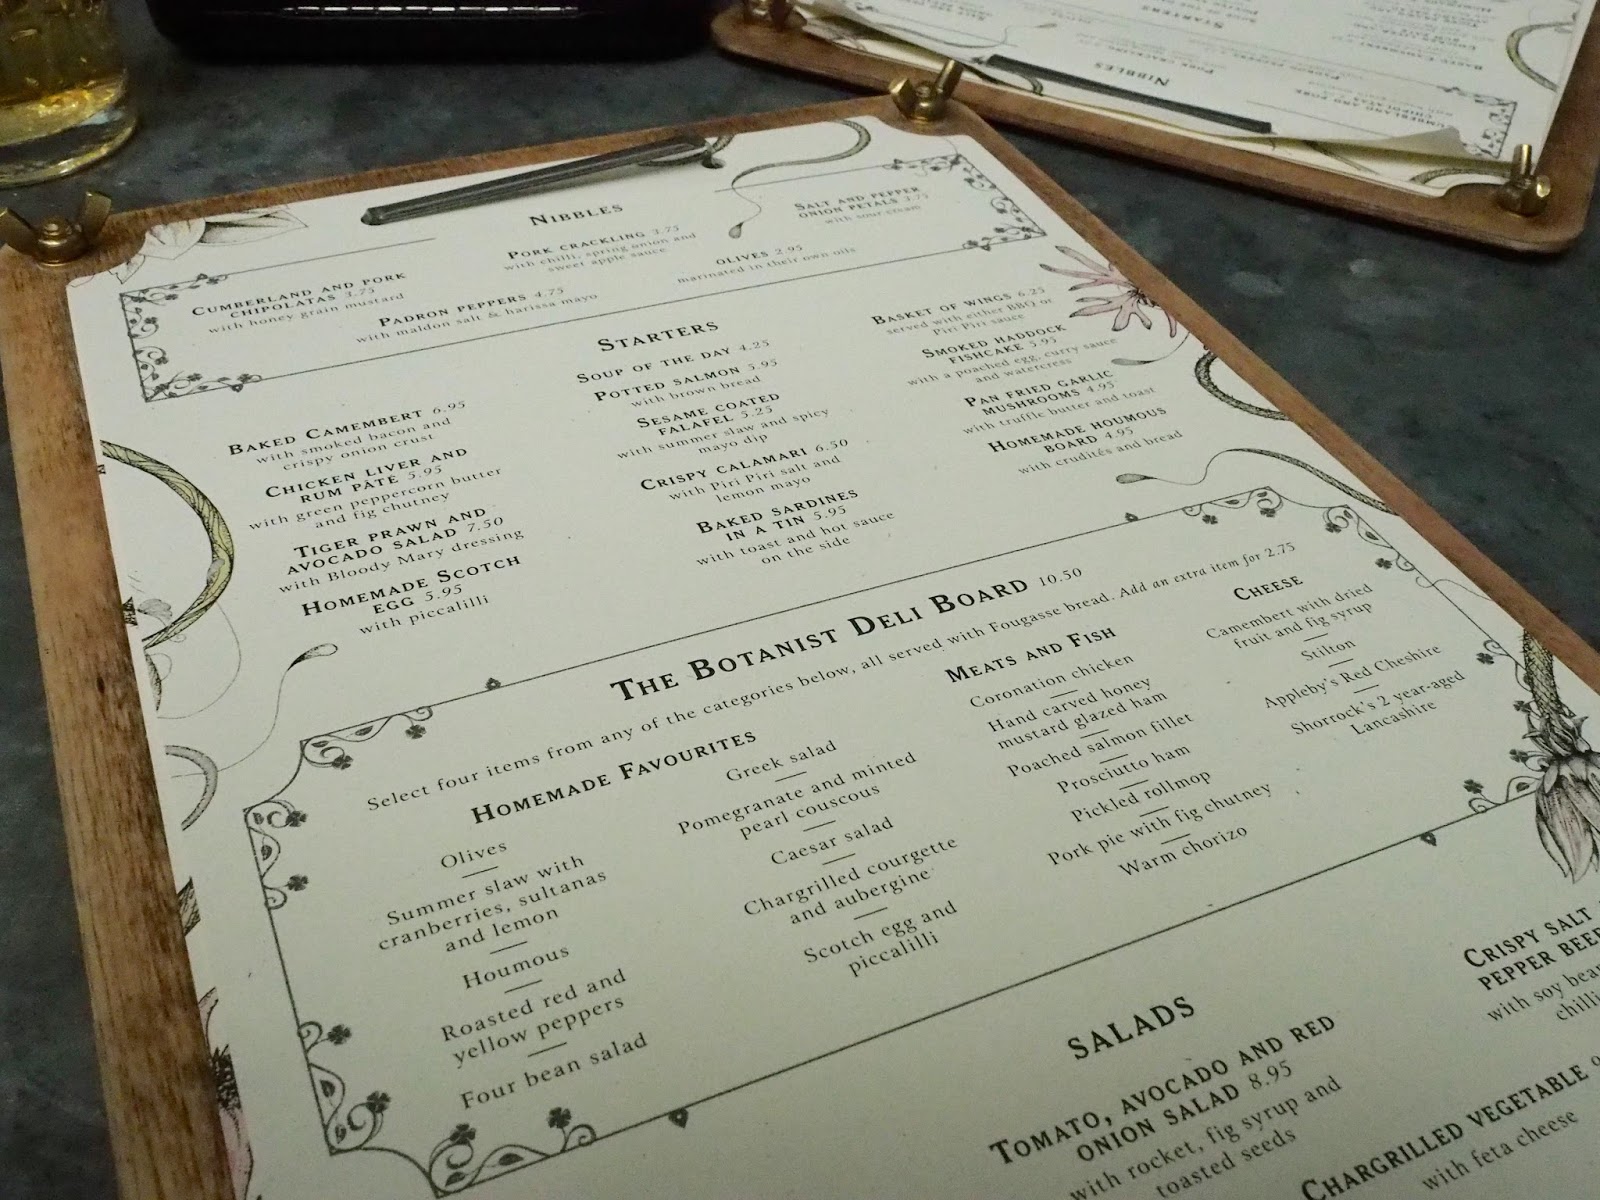 NIBBLES
CUMBERLAND AND PORK
CHIPOLATAS 3.75
with honey grain mustard
PORK CRACKLING 3.75
with chilli, spring onion and
sweet apple sauce
SALT AND PEPPER
ONION PETALS 3.75
with sour cream
PADRON PEPPERS 4.75
with maldon salt & harissa mayo
OLIVES 2.95
marinated in their own oils
STARTERS
BAKED CAMEMBERT 6.95
with smoked bacon and
crispy onion crust
CHICKEN LIVER AND
RUM PÂTÉ 5.95
with green peppercorn butter
and fig chutney
TIGER PRAWN AND
AVOCADO SALAD 7.50
with Bloody Mary dressing
HOMEMADE SCOTCH
EGG 5.95
with piccalilli
SOUP OF THE DAY 4.25
POTTED SALMON 5.95
with brown bread
SESAME COATED
FALAFEL 5.25
with summer slaw and spicy
mayo dip
CRISPY CALAMARI 6.50
with Piri Piri salt and
lemon mayo
BAKED SARDINES
IN A TIN 5.95
with toast and hot sauce
on the side
BASKET OF WINGS 6.25
served with either BBQ or
Piri Piri sauce
SMOKED HADDOCK
FISHCAKE 5.95
with a poached egg, curry sauce
and watercress
PAN FRIED GARLIC
MUSHROOMS 4.95
with truffle butter and toast
HOMEMADE HOUMOUS
BOARD 4.95
with crudités and bread
THE BOTANIST DELI BOARD 10.50
Select four items from any of the categories below, all served with Fougasse bread. Add an extra item for 2.75
HOMEMADE FAVOURITES
Olives
Summer slaw with
cranberries, sultanas
and lemon
Houmous
Roasted red and
yellow peppers
Four bean salad
Greek salad
Pomegranate and minted
pearl couscous
Caesar salad
Chargrilled courgette
and aubergine
Scotch egg and
piccalilli
MEATS AND FISH
Coronation chicken
Hand carved honey
mustard glazed ham
Poached salmon fillet
Prosciutto ham
Pickled rollmop
Pork pie with fig chutney
Warm chorizo
CHEESE
Camembert with dried
fruit and fig syrup
Stilton
Appleby's Red Cheshire
Shorrock's 2 year-aged
Lancashire
SALADS
TOMATO, AVOCADO AND RED
ONION SALAD 8.95
with rocket, fig syrup and
toasted seeds
CRISPY SALT
PEPPER BEEF
with soy bean
chilli
CHARGRILLED VEGETABLE
with feta cheese
STARTERS
NIBBLES
PORK CRACKLING